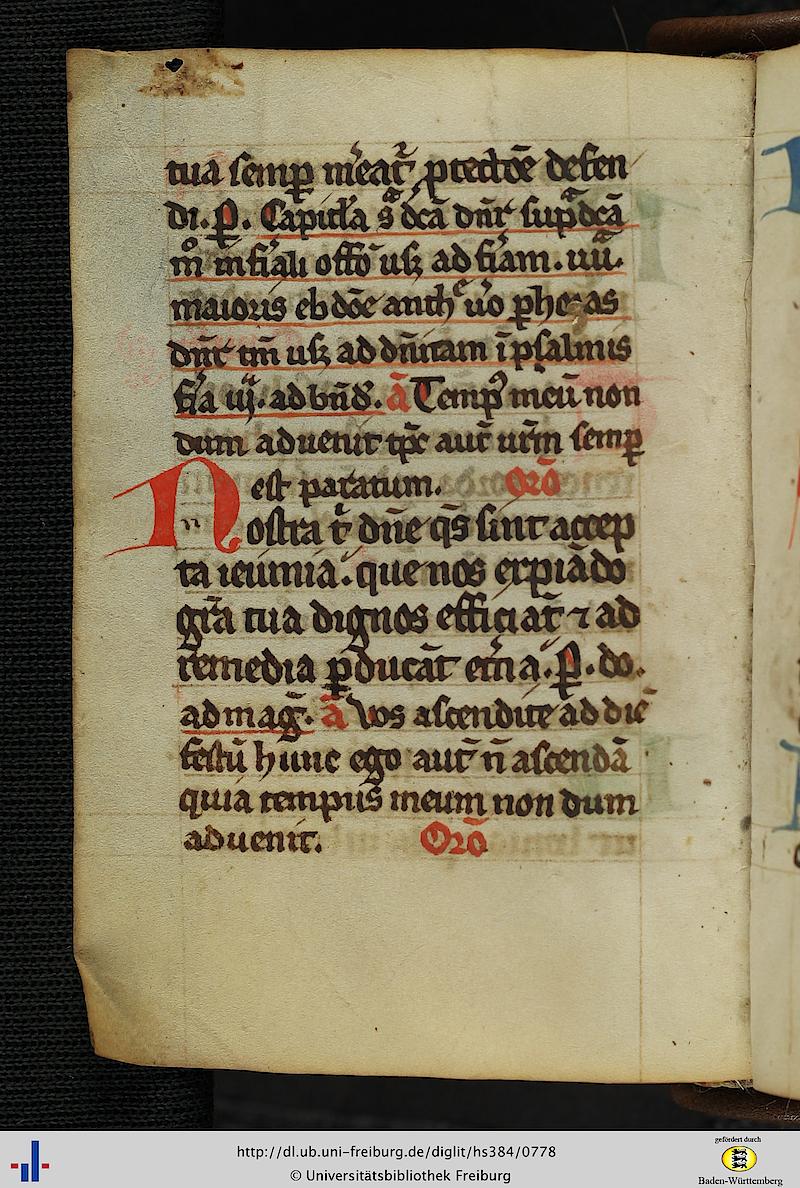 tua semꝑ mẽeat᷑ ꝓtectōe defen
di. P̱. Capitl̓a s̄ dc̄a dn̄r̄ supᵃdc̄a
mº in fiali offō usꝫ ad fiam. iiii.
maioris ebdōe antħ v̓o ꝑhe as
dn̄r̄ tm̄ usꝫ ad dn̄icam ī psalmis
fr̄a iij. ad bn̄d. ā Tempꝰ meū non
dum aduenit tp̄c aut̄ ur̄m semꝑ
est paratum. Orō
Nostra t᷑ dn̄e q̄s sint accep
ta ieiunia. que nos expiādo
gr̄a tua dignos efficiāt ⁊ ad
remedia ꝑducāt et̄na. P̱. do.
ad maḡ. ā Vos ascendite ad diē
festū hunc ego aut̄ n̄ ascendā
quia tempus meum non dum
aduenit. Orō
http://dl.ub.uni-freiburg.de/diglit/hs384/0778
© Universitätsbibliothek Freiburg
gefördert durch
Baden-Württemberg